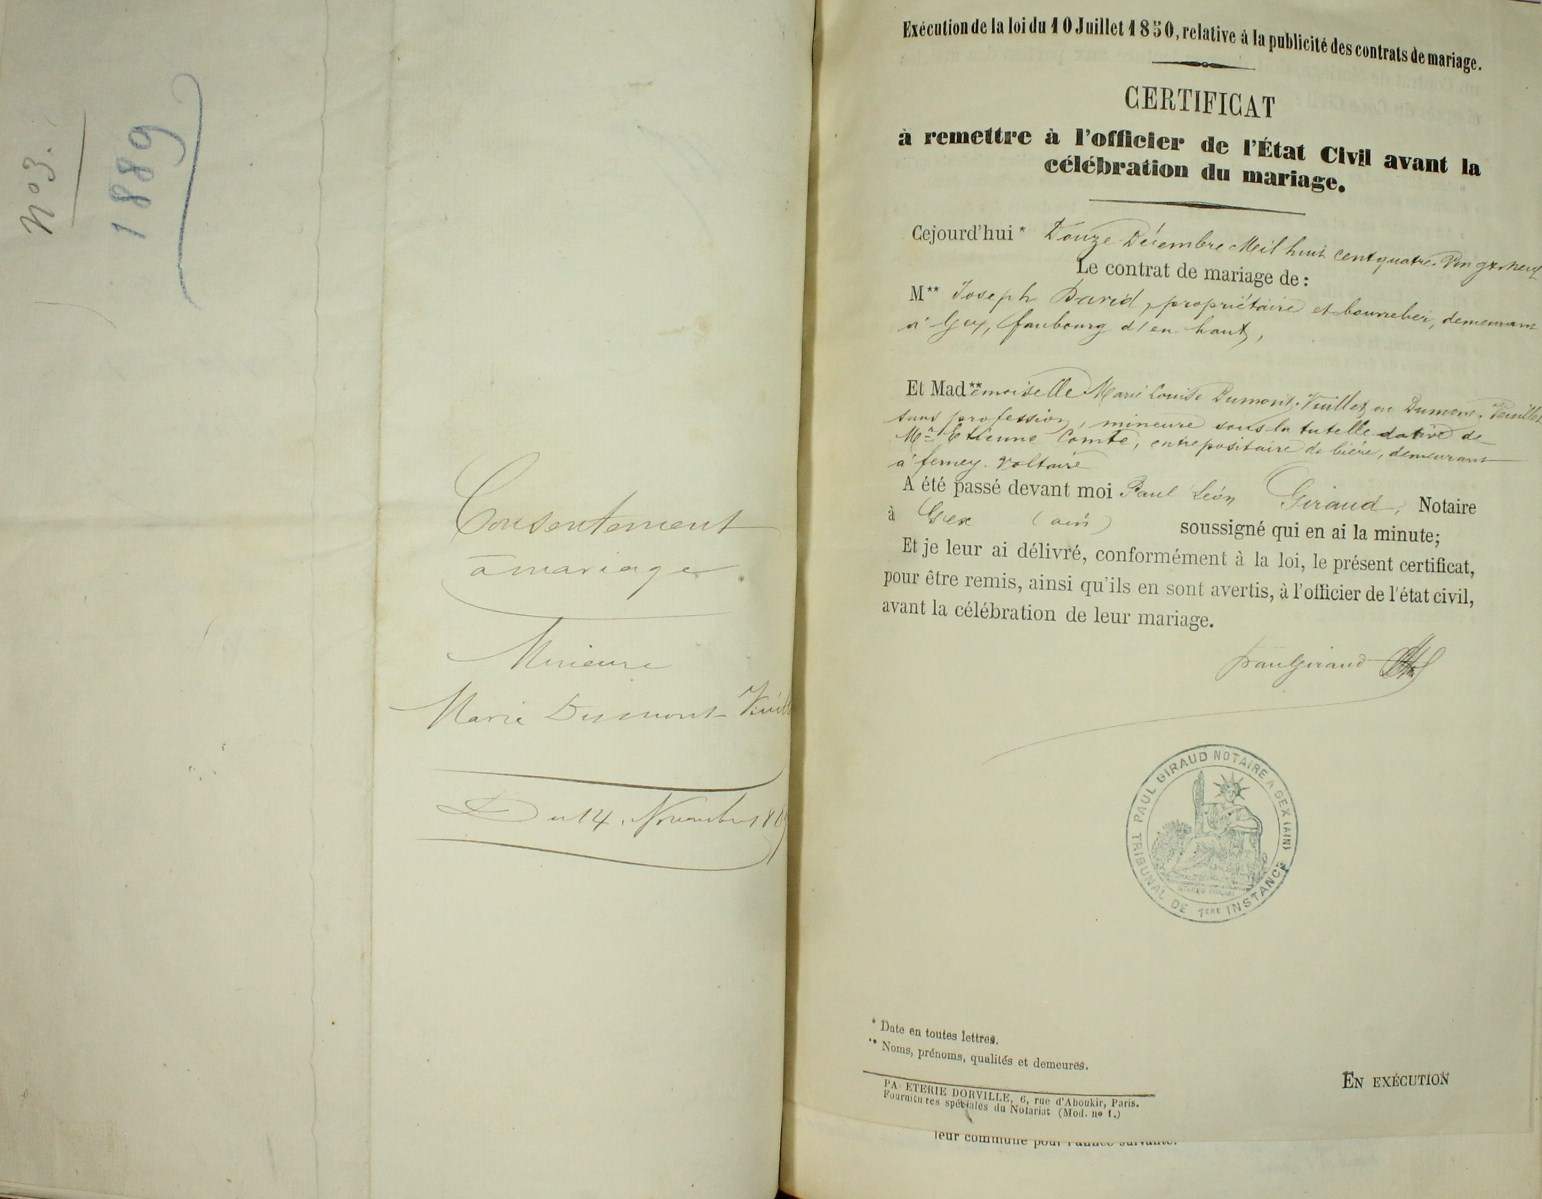 N° 3.
1889
Consentement
à mariage
Mineure
Marie Dumont-Vuill
Du 14 Novembre 18
Exécution de la loi du 10 Juillet 1850, relative à la publicité des contrats de mariage.
CERTIFICAT
à remettre à l'officier de l'État Civil avant la
célébration du mariage.
Cejourd'hui * Douze Décembre Mil huit cent quatre-vingt-neuf
Le contrat de mariage de :
M** Joseph David, propriétaire et bourrelier, demeurant
à Gex, faubourg d'en haut,
Et Mad**emoiselle Marie Louise Dumont-Vuillet ou Dumont-Vuillet
sans profession, mineure sous la tutelle dative de
Mr Etienne Comte, entrepositaire de bière, demeurant
à ferney-Voltaire
A été passé devant moi Paul Léon Giraud, Notaire
à Gex (ain) soussigné qui en ai la minute;
Et je leur ai délivré, conformément à la loi, le présent certificat,
pour être remis, ainsi qu'ils en sont avertis, à l'officier de l'état civil,
avant la célébration de leur mariage.
Paul Giraud
PAUL GIRAUD NOTAIRE A GEX (AIN)
TRIBUNAL DE 1ERE INSTANCE
* Date en toutes lettres.
** Noms, prénoms, qualités et demeures.
EN EXÉCUTION
PA ETERIE DORVILLE, 6, rue d'Aboukir, Paris.
Fournitures spéciales du Notariat (Mod. n° 1.)
leur commune pour l'année suivante.